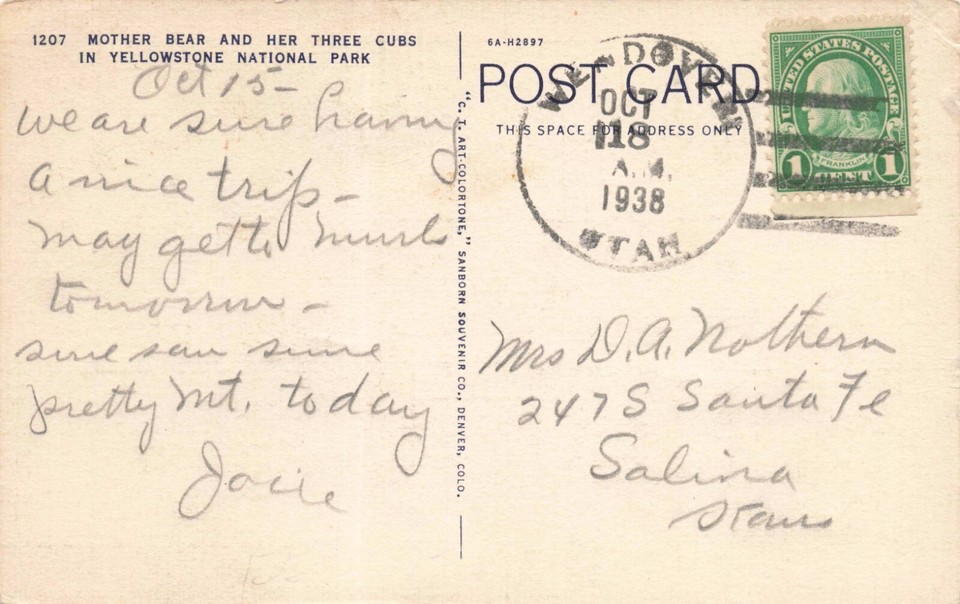 1207 MOTHER BEAR AND HER THREE CUBS
IN YELLOWSTONE NATIONAL PARK
Oct 15-
we are sure having
a nice trip-
may get to
tomorrow -
sure saw some
pretty Mt. today
Josie
"C. T. ART-COLORTONE," SANBORN SOUVENIR CO., DENVER, COLO.
6A-H2897
POST CARD
THIS SPACE FOR ADDRESS ONLY
WENDOVER
OCT
18
A.M.
1938
UTAH
UNITED STATES POSTAGE
FRANKLIN
1 CENT 1
Mrs D. A. Nothern
247 S Santa Fe
Salina
Kans